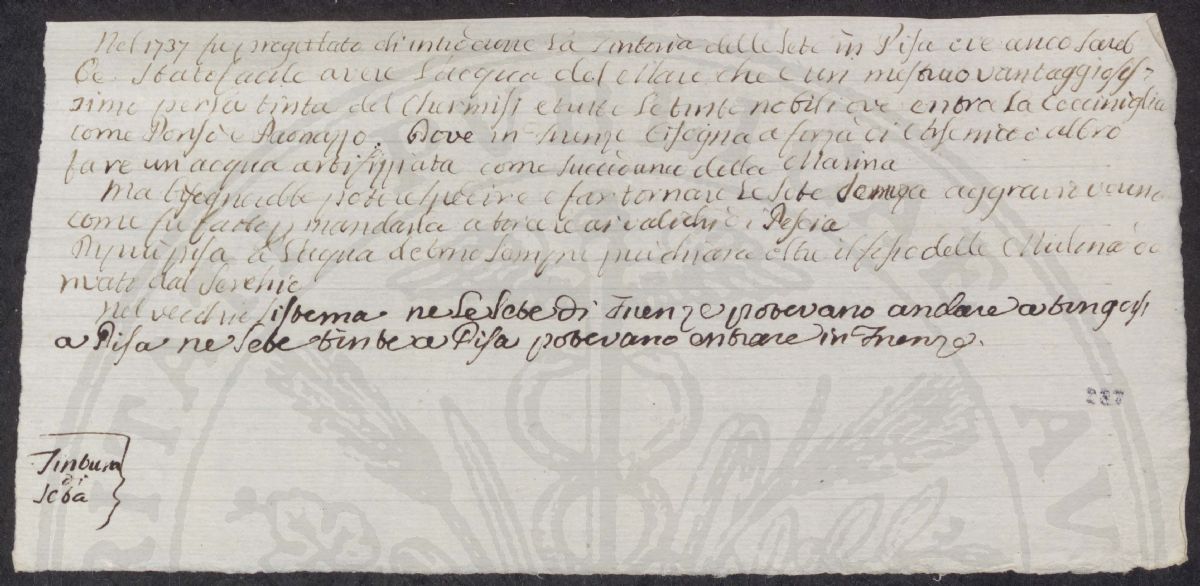 Nel 1737 fu progettato di introdurre la Tintoria delle Sete in Pisa ove anco sareb
be stato facile avere l'acqua del Mare che è un mestruo vantaggiosis-
simo per la tinta del Chermisi e tutte le tinte nobili ove entra la Cocciniglia
come Ponsò e Paonazzo. Dove in Firenze bisogna a forza di Arsenico e altro
fare un acqua artifiziata come succedanea della Marina
Ma bisognerebbe poter spedire e far tornare le Sete senza aggravio veruno
come fu fatto p mandarla a torcere ai valichi di Pescia
Di più Pisa à l'acqua d'Arno sempre più chiara oltre il fosso delle Mulina
derivato dal Serchio
Nel vecchio sistema ne le Sete di Firenze potevano andare a tingersi
a Pisa ne Sete tinte a Pisa potevano entrare in Firenze.
237
Tintura
di
Seta